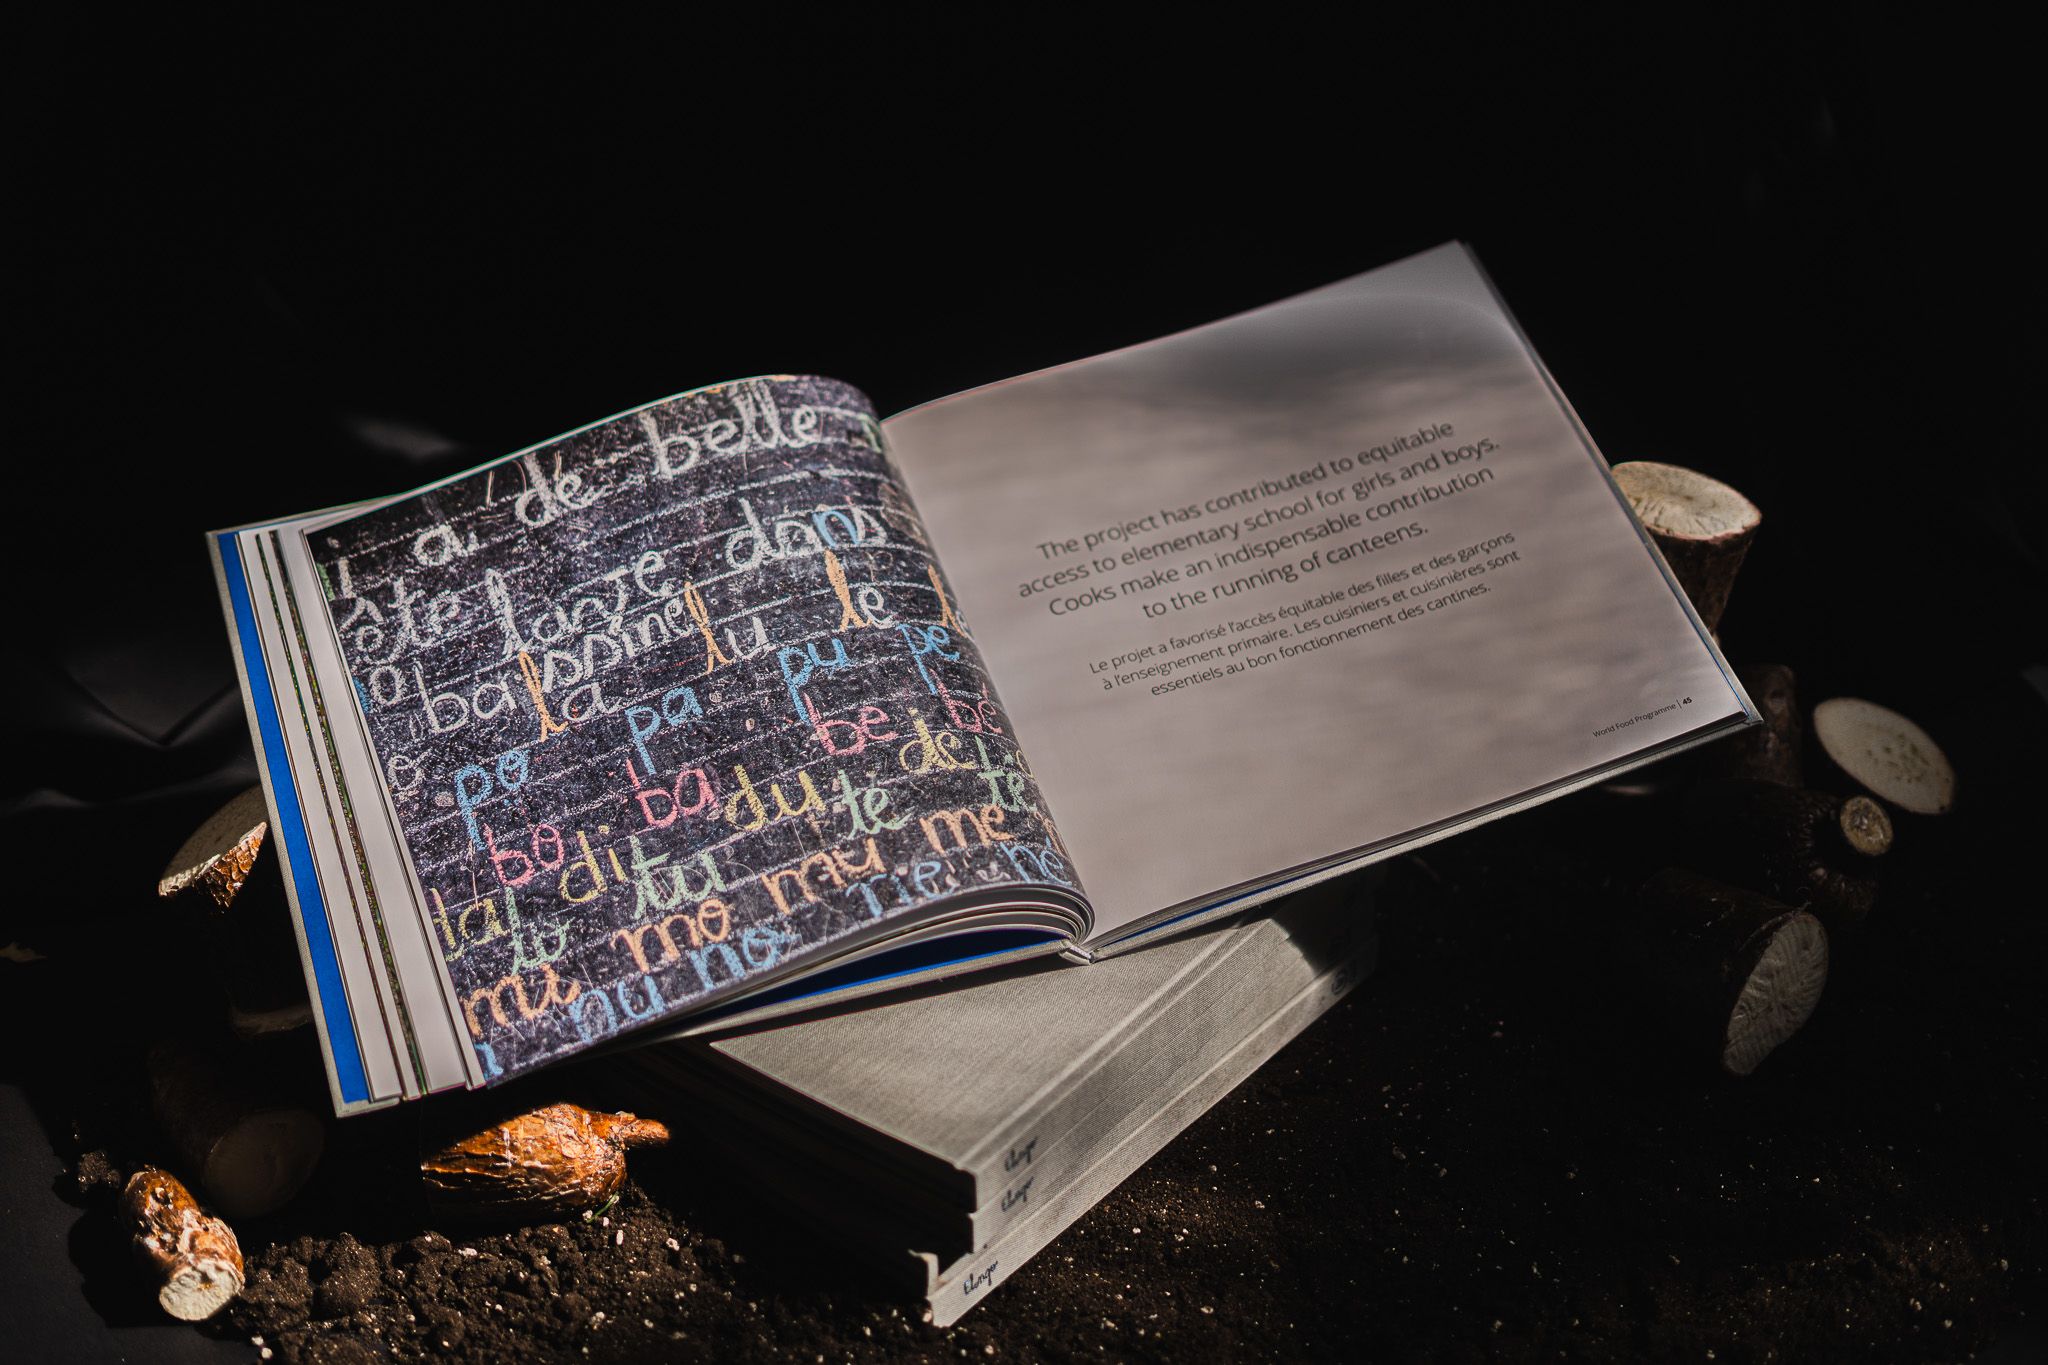 a de belle
été lavée dans
bassine
la lu le lé
po pa pu pe
bo ba be bé
di du de
to tu te té
mi mo mu me
nu no ne né
The project has contributed to equitable
access to elementary school for girls and boys.
Cooks make an indispensable contribution
to the running of canteens.
Le projet a favorisé l'accès équitable des filles et des garçons
à l'enseignement primaire. Les cuisiniers et cuisinières sont
essentiels au bon fonctionnement des cantines.
World Food Programme | 45